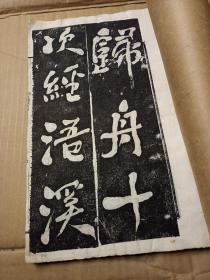 歸舟十
次經浯溪